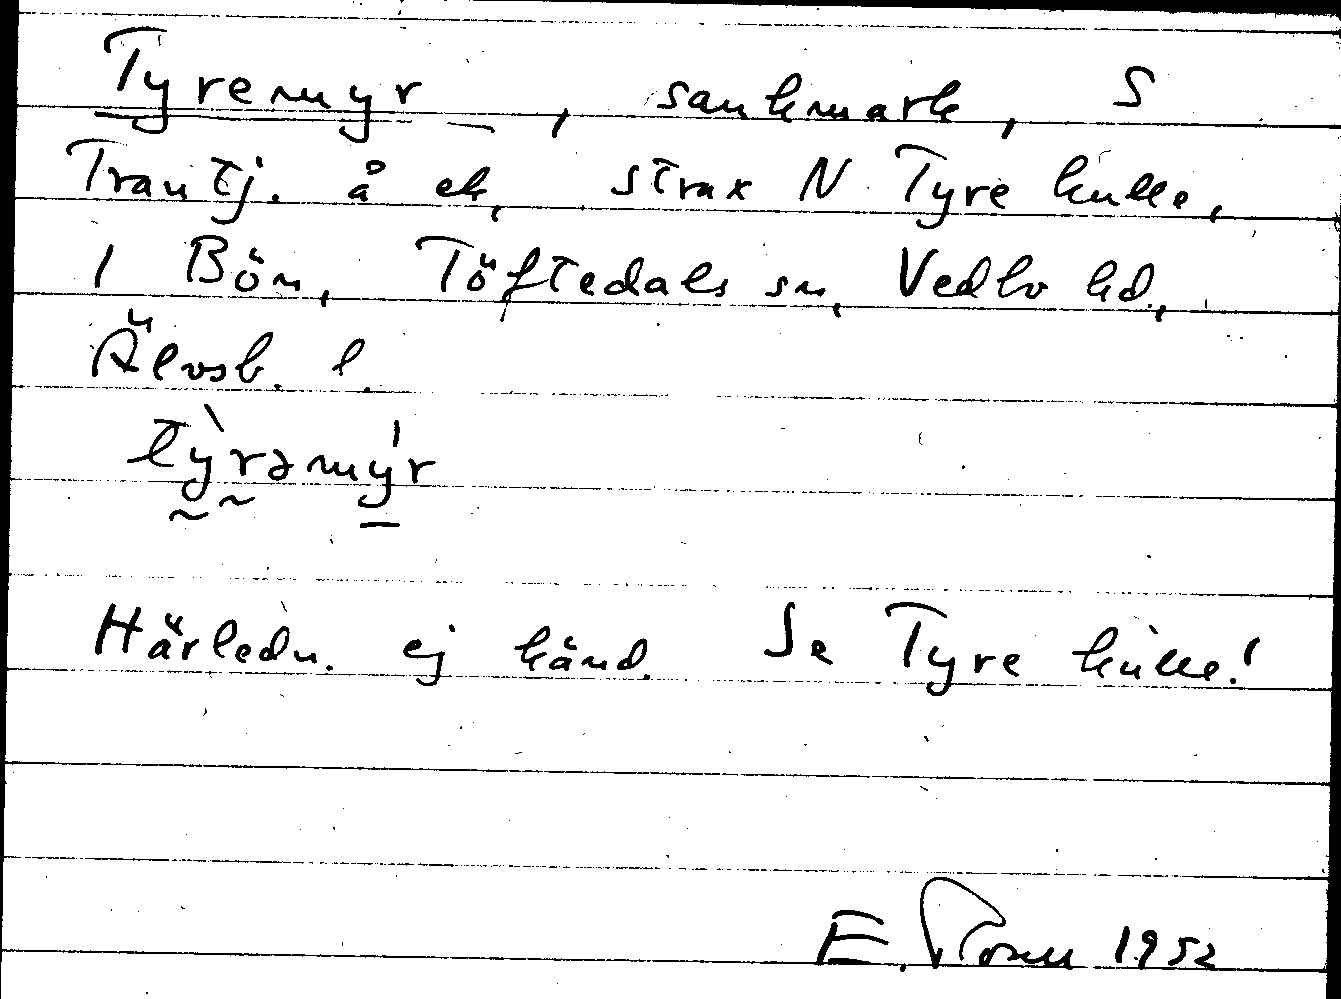 Tyremyr, sankmark, S
Trantj. å ek, strax N Tyre kulle,
i Bön, Töftedals sn, Vedbo hd,
Älvsb. l.
tỳrəmy̍r
Härledn. ej känd. Se Tyre kulle!
E. 1952